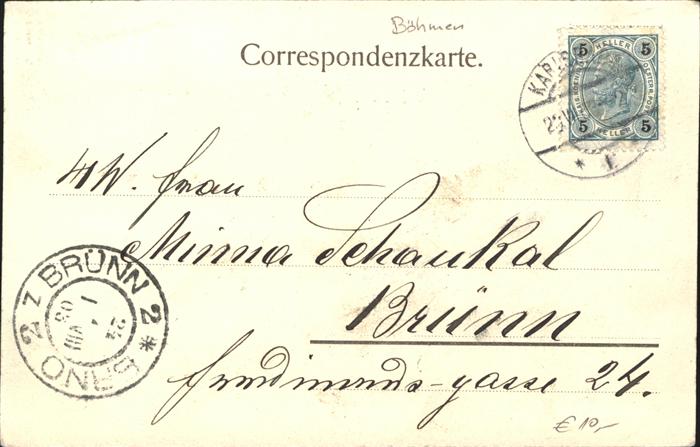 Böhmen
Correspondenzkarte.
5 HELLER 5
5 HELLER 5
W. Frau
Minna Schaukal
Brünn
Ferdinands-gasse 24.
2 BRÜNN 2 * BRNO 2 Z
€ 10,-